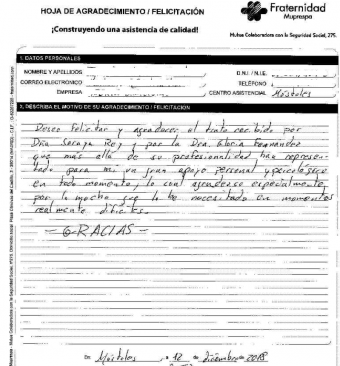 HOJA DE AGRADECIMIENTO / FELICITACIÓN
Fraternidad
Muprespa
¡Construyendo una asistencia de calidad!
Mutua Colaboradora con la Seguridad Social, 275.
1. DATOS PERSONALES
NOMBRE Y APELLIDOS
D.N.I. / N.I.E.
CORREO ELECTRÓNICO
TELÉFONO
EMPRESA
CENTRO ASISTENCIAL Móstoles
2. DESCRIBA EL MOTIVO DE SU AGRADECIMIENTO / FELICITACIÓN
Deseo felicitar y agradecer el trato recibido por
Dña Soraya Rey y por la Dra. Gloria Fernández
que más allá de su profesionalidad han represen-
tado para mí un gran apoyo personal y psicológico
en todo momento, lo cual agradezco especialmente
por lo mucho que lo he necesitado en momentos
realmente difíciles.
- GRACIAS -
En Móstoles, a 12 de diciembre 2018